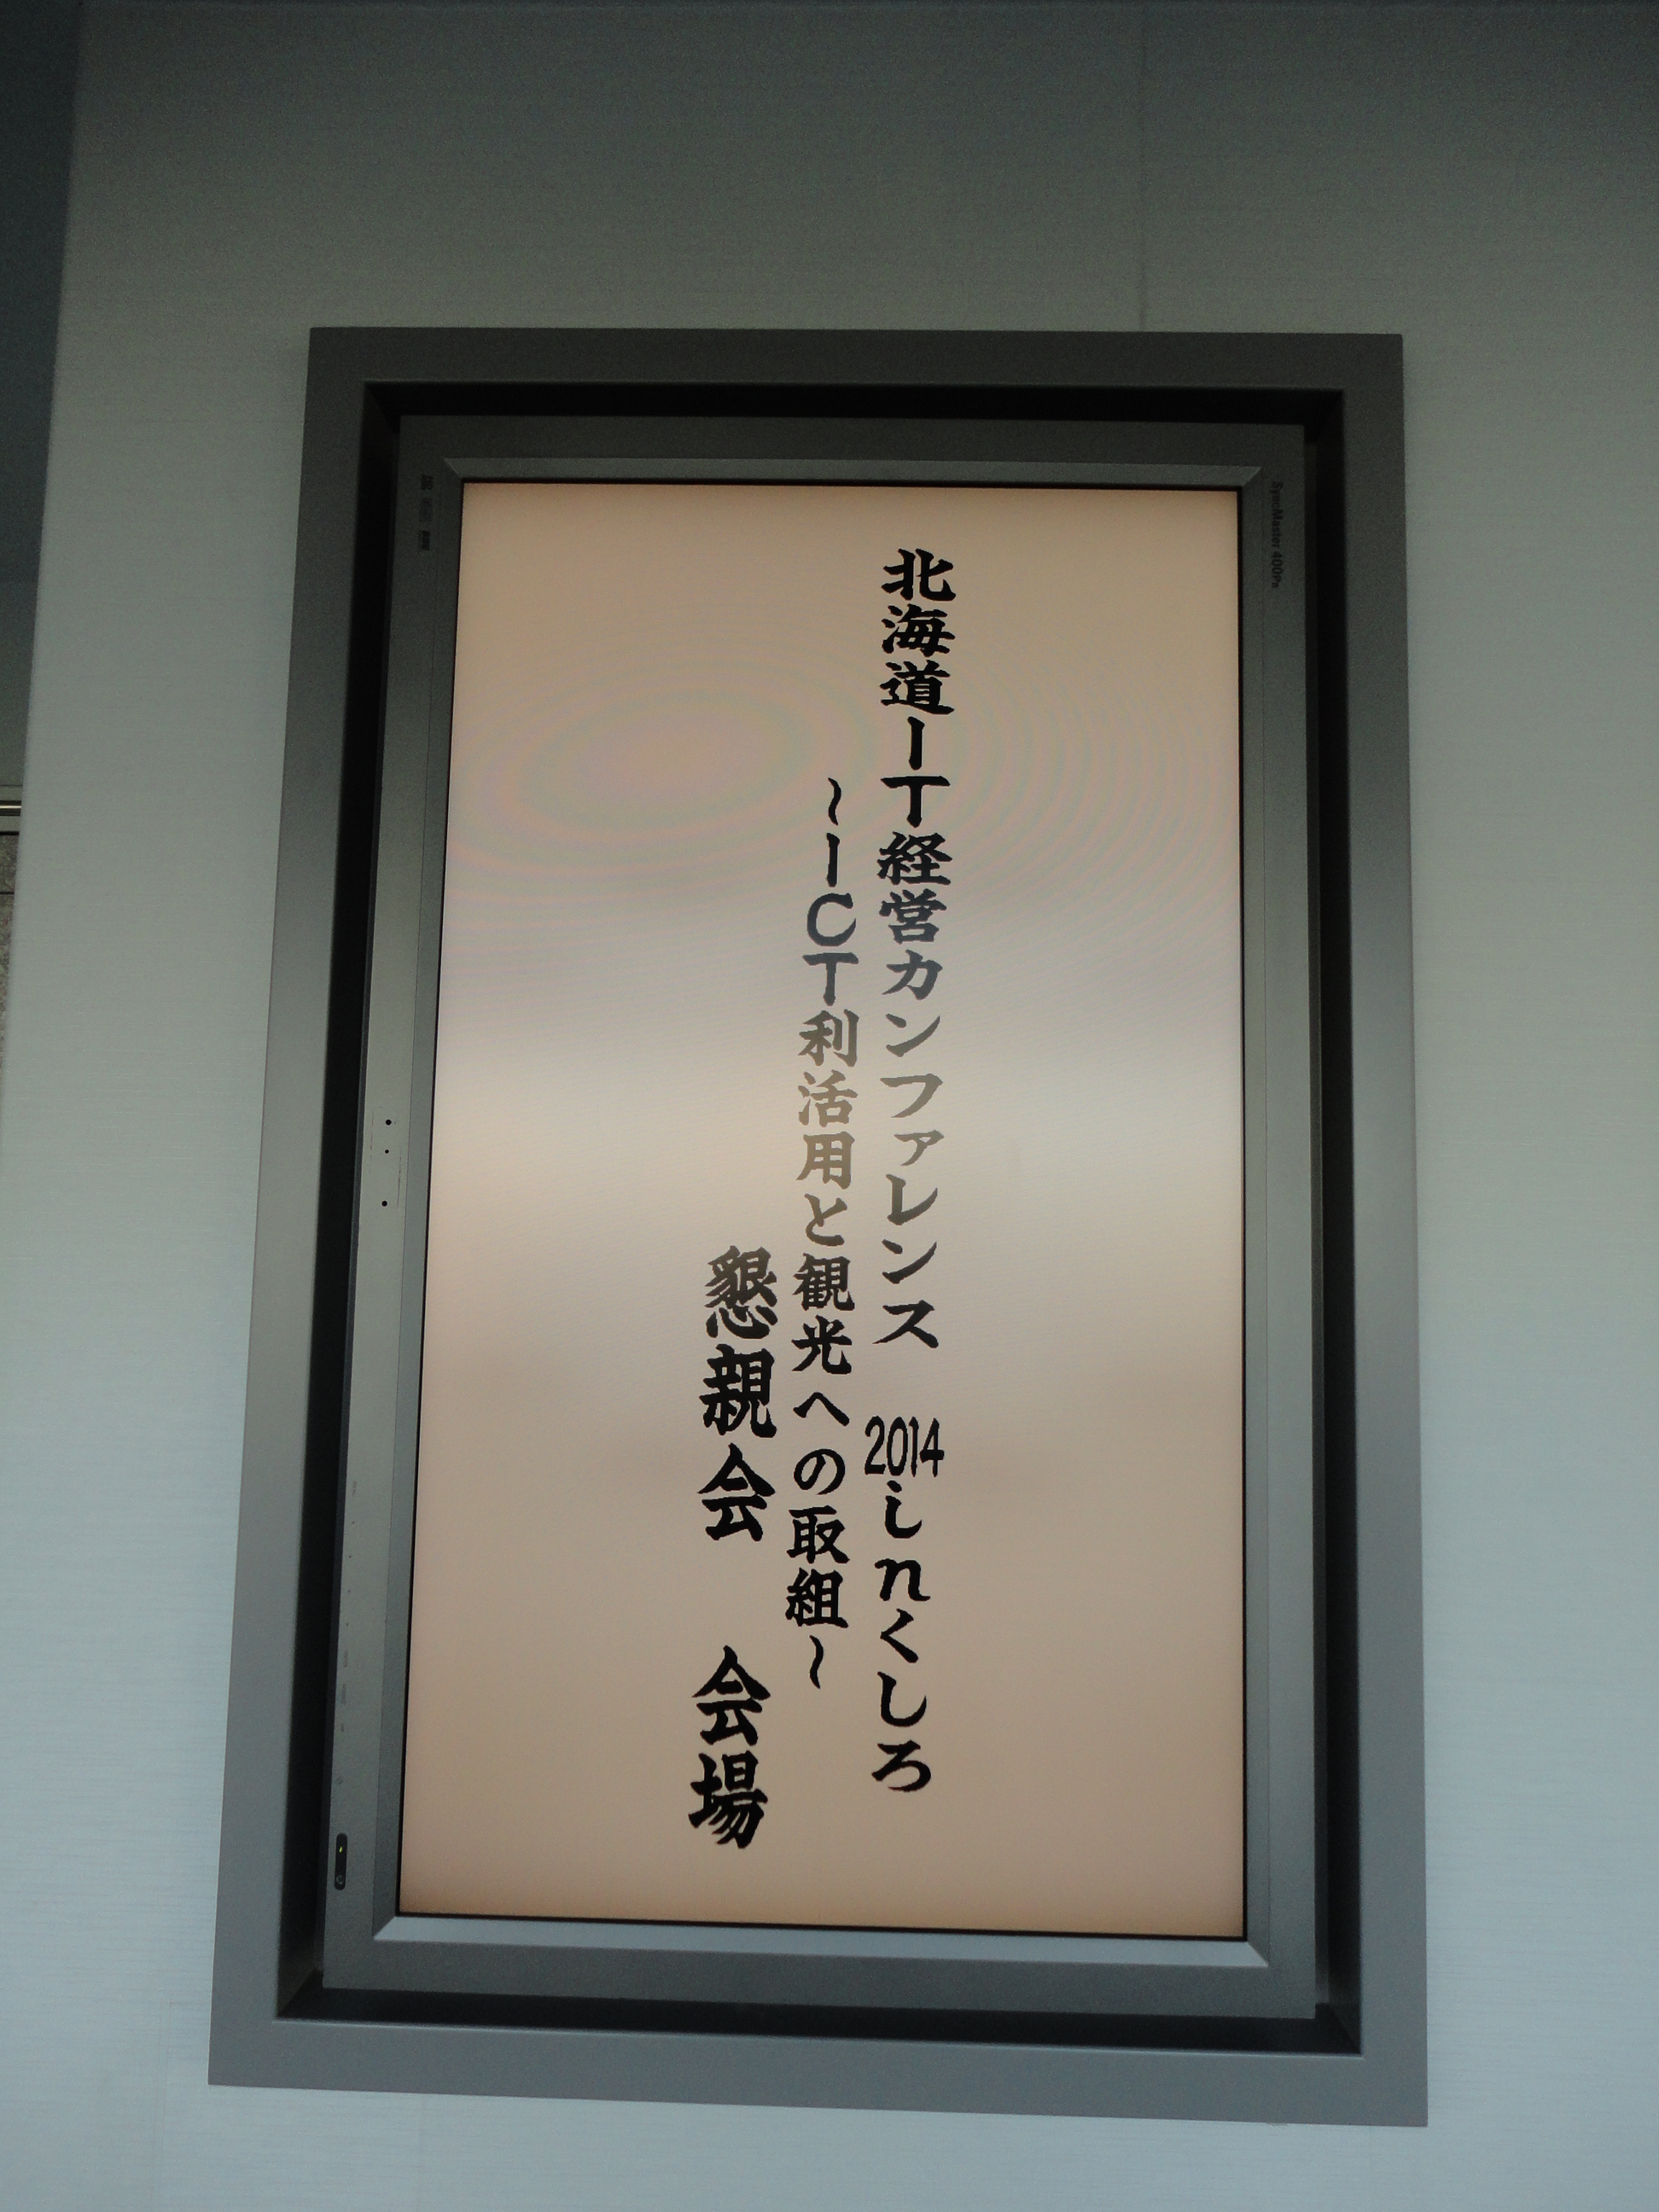 北海道IT経営カンファレンス 2014 in くしろ
~ICT利活用と観光への取組~
懇親会 会場
SyncMaster 400Pn